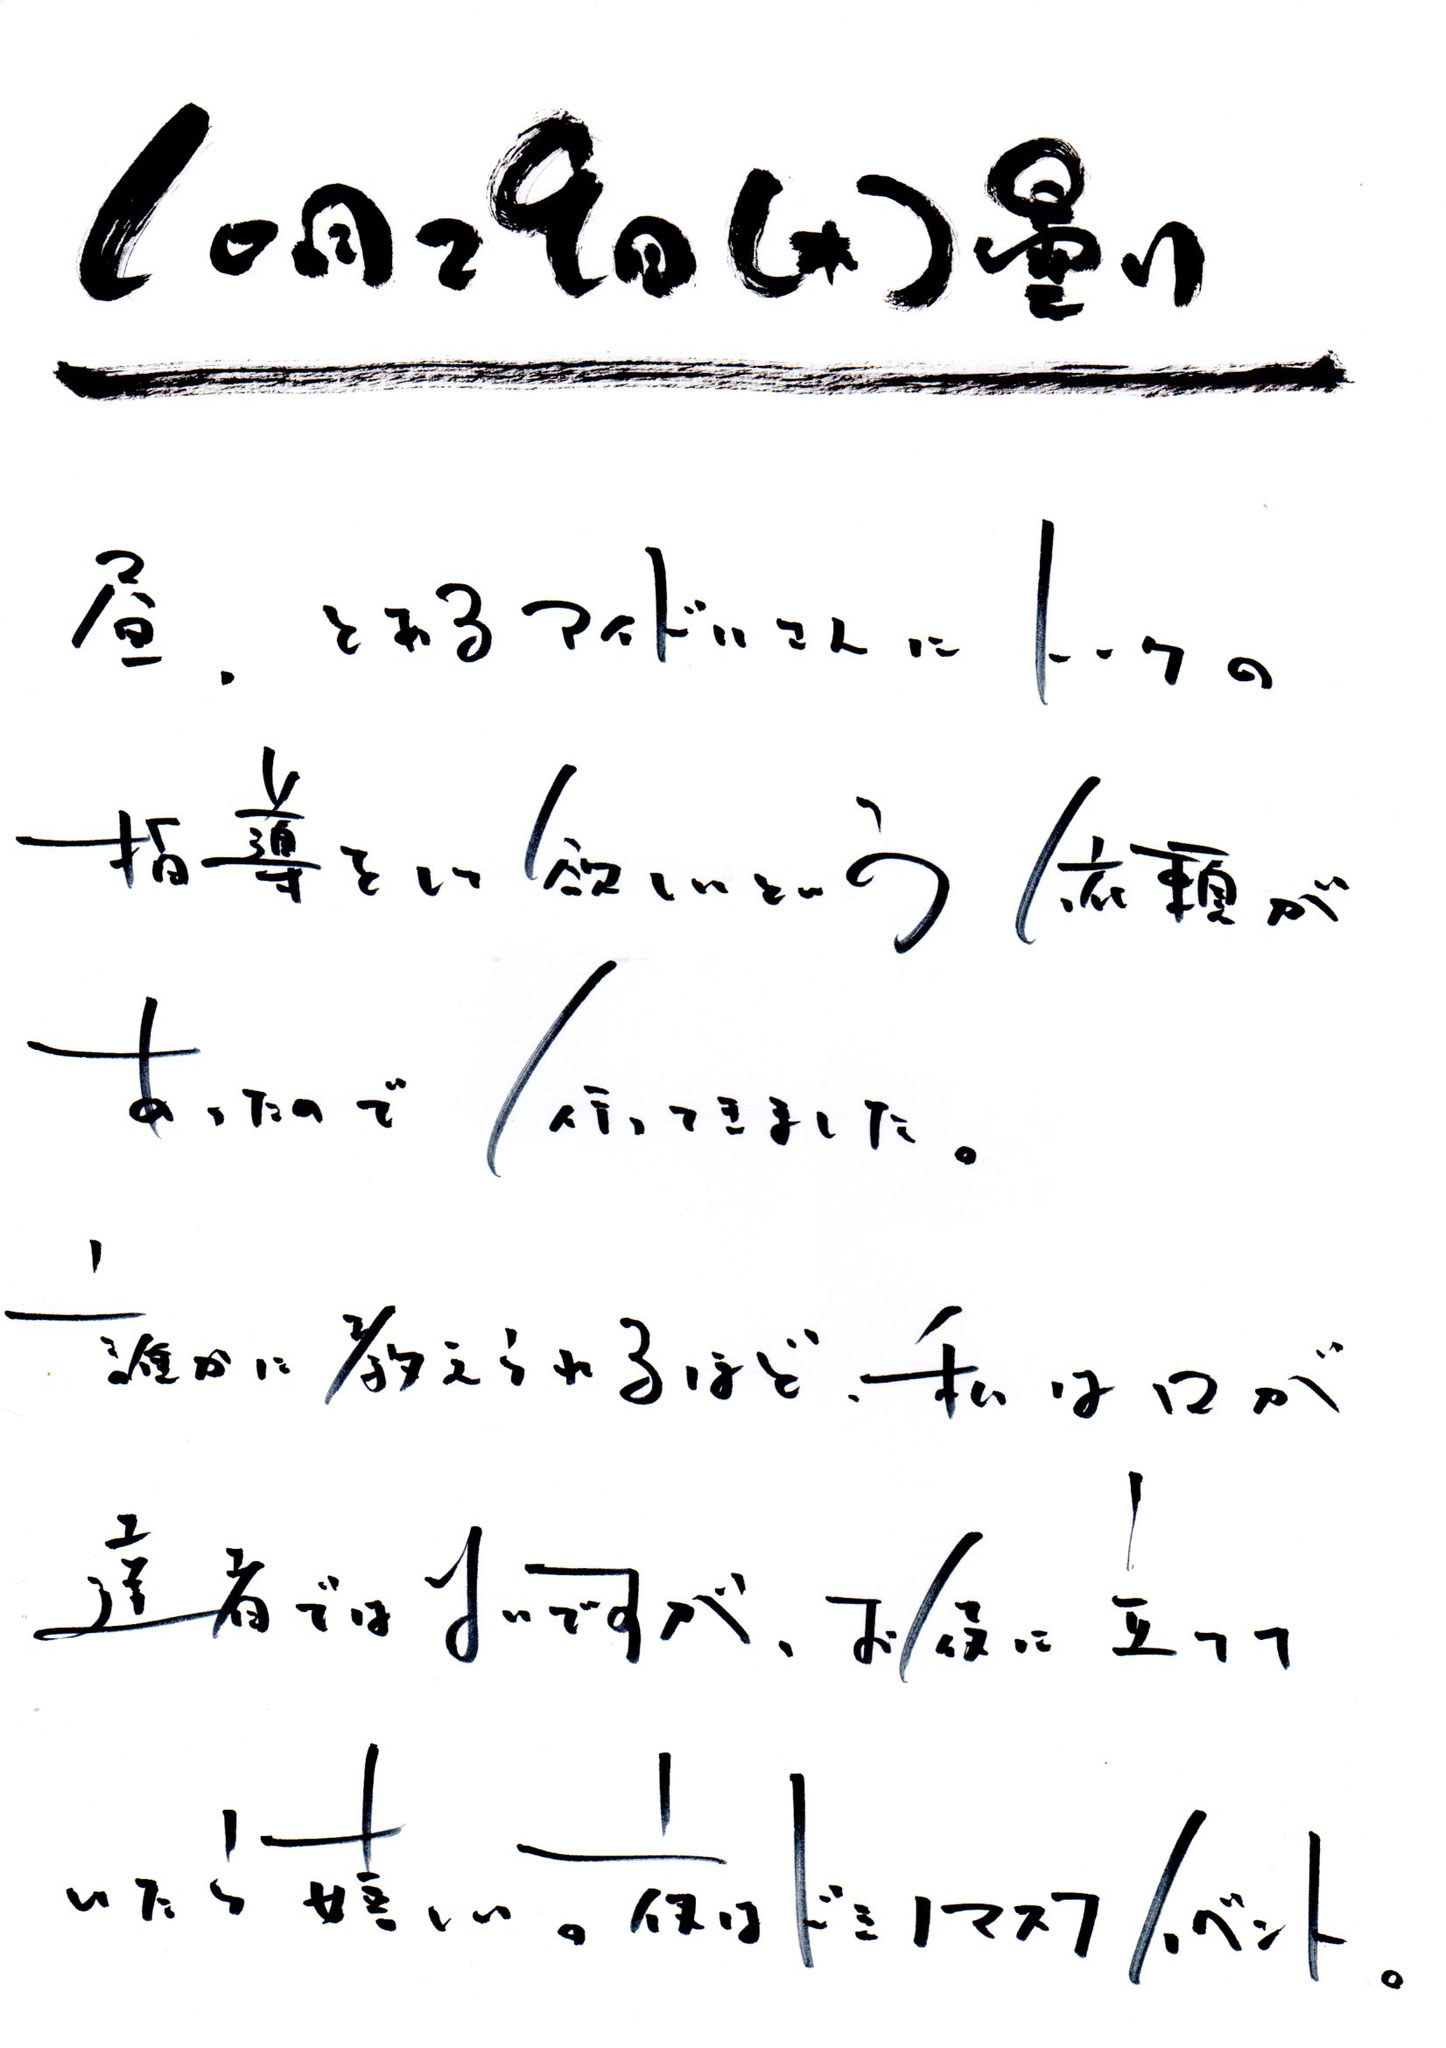 10月29日(木)曇り
昼、とあるアイドルさんにトークの
指導をして欲しいという依頼が
あったので行ってきました。
誰かに教えられるほど、私は口が
達者ではないですが、お役に立てて
いたら嬉しい。夜はドミノマスクイベント。